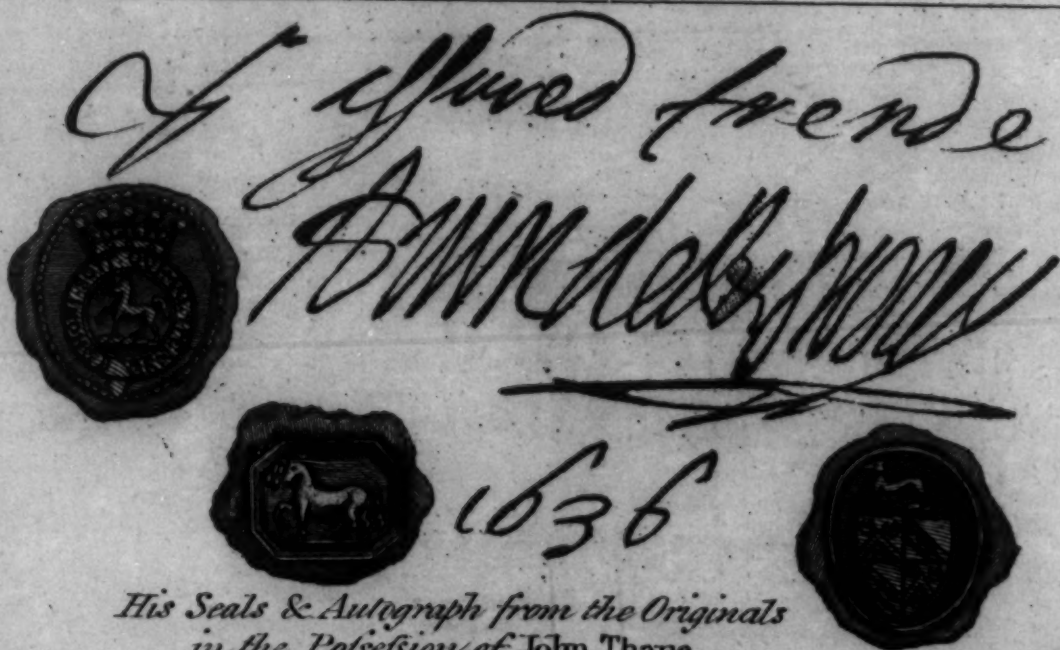 Yr aſſured frende
Arundel
1636
His Seals & Autograph from the Originals
in the Poſseſsion of John Thane